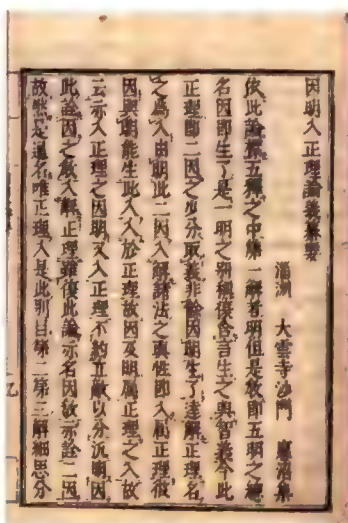 因明入正理論義纂要
淄洲 大雲寺沙門 慧沼集
依此論標五釋之中第一解者明但是教即五明之總
名因即生了是一明之別稱復含言生之與智義今此
正理即二因之少分取義非餘因明生了達解正理名
之為入由明此二因入解諸法之與性即入屬正理彼
因與明能生此入入於正理故因及明屬正理之入故
云示入正理之因明又入正理不約立敵以分沉明因
此詮因之教入解正理雖復此論亦名因故示詮二因
故然定通名唯正理入是此別目第二第三解細思分